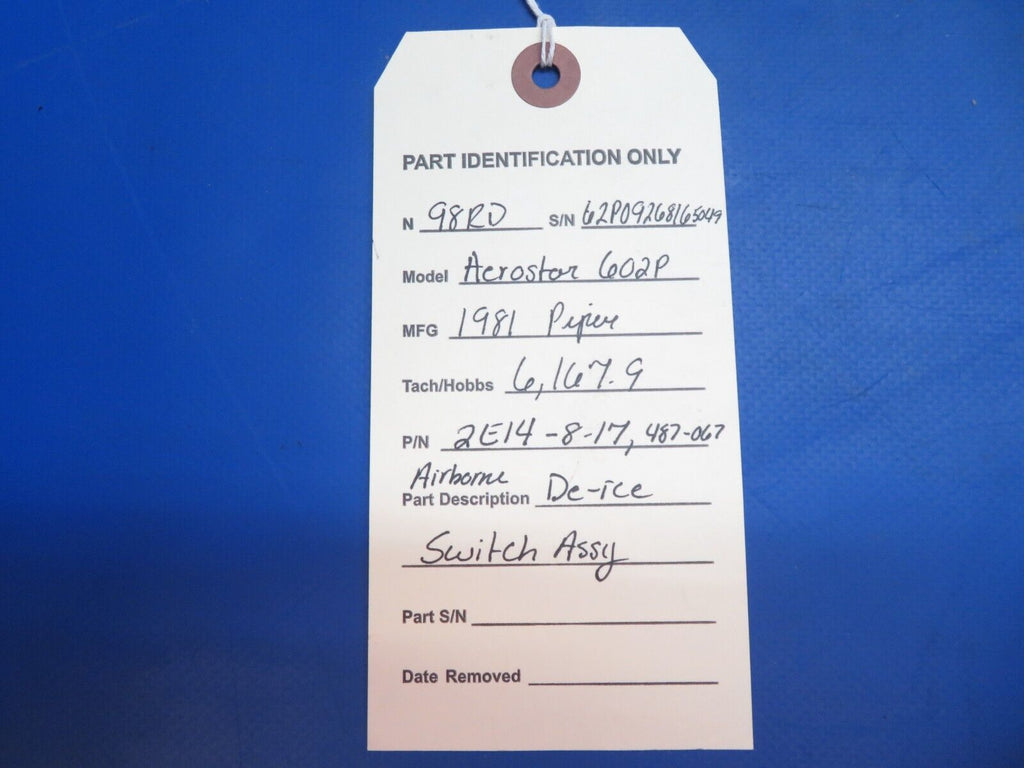 PART IDENTIFICATION ONLY
N 98RD S/N 62P09268165049
Model Aerostar 602P
MFG 1981 Piper
Tach/Hobbs 6,167.9
P/N 2E14-8-17, 487-067
Airborne
Part Description De-ice
Switch Assy
Part S/N
Date Removed